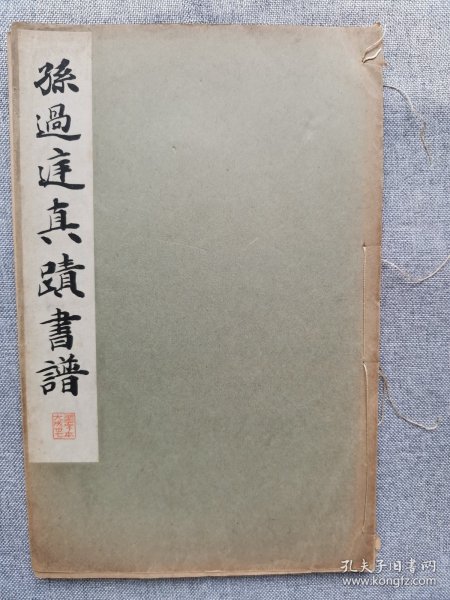 孫過庭真蹟書譜
孔夫子旧书网
www.kongfz.com